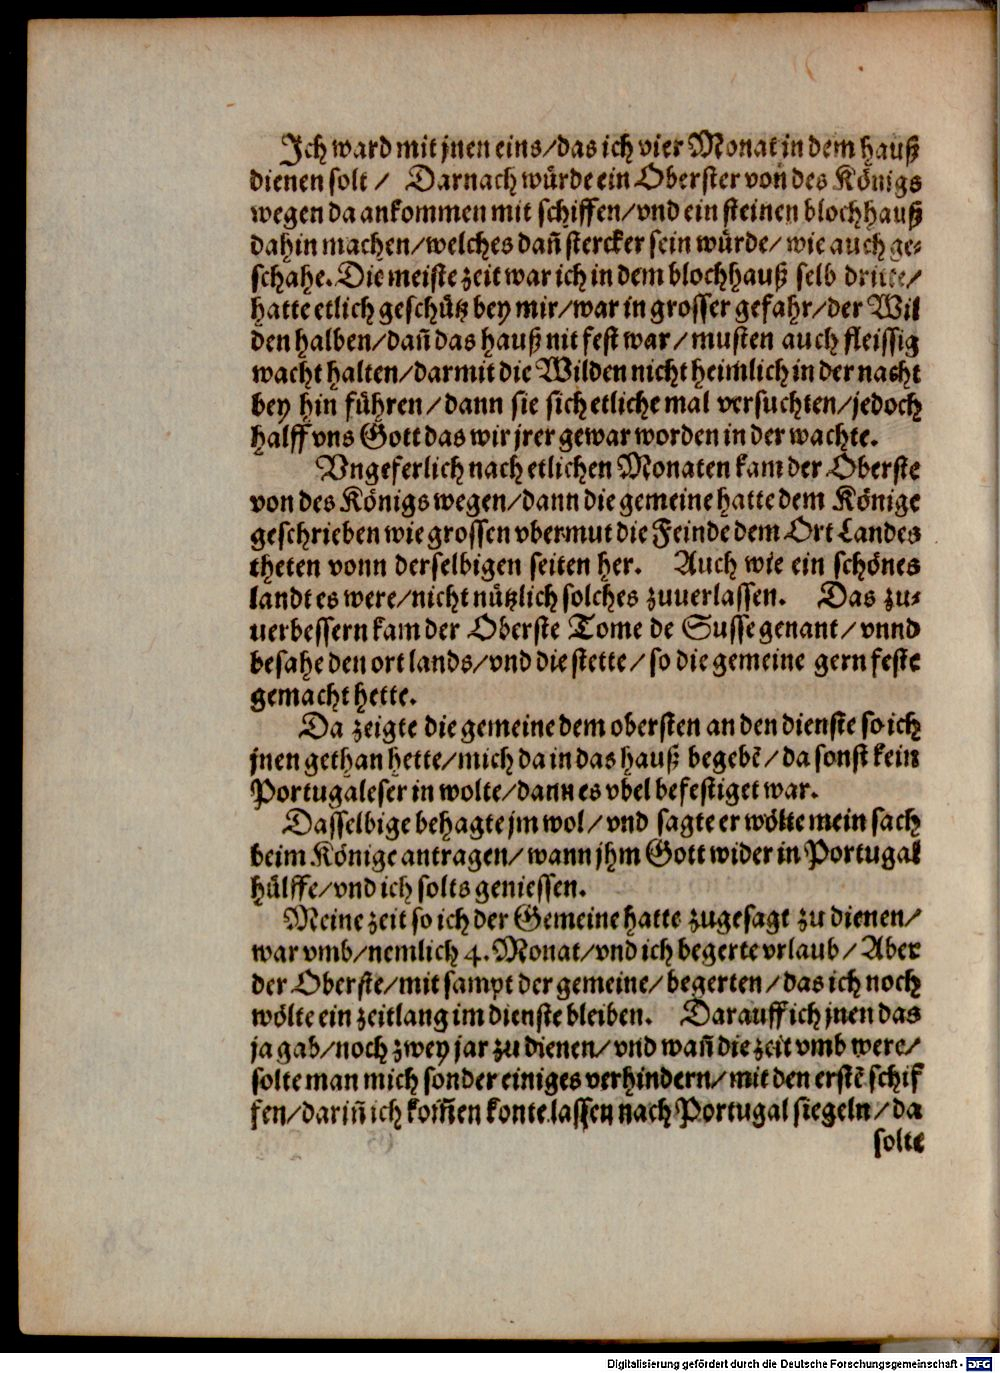 Ich ward mit jnen eins/das ich vier Monat in dem hauß
dienen solt / Darnach würde ein Oberster von des Königs
wegen da ankommen mit schiffen/vnd ein steinen blochhauß
dahin machen/welches dañ stercker sein würde/wie auch ge-
schahe. Die meiste zeit war ich in dem blochhauß selb dritte/
hatte etlich geschütz bey mir/war in grosser gefahr/der Wil
den halben/dañ das hauß nit fest war/musten auch fleissig
wacht halten/darmit die Wilden nicht heimlich in der nacht
bey hin führen/dann sie sich etliche mal versuchten/jedoch
halff vns Gott das wir jrer gewar worden in der wachte.
Vngeferlich nach etlichen Monaten kam der Oberste
von des Königs wegen/dann die gemeine hatte dem Könige
geschrieben wie grossen vbermut die Feinde dem Ort Landes
theten vonn derselbigen seiten her. Auch wie ein schönes
landt es were/nicht nützlich solches zuuerlassen. Das zu-
uerbessern kam der Oberste Tome de Susse genant/vnnd
besahe den ort lands/vnd die stette/so die gemeine gern feste
gemacht hette.
Da zeigte die gemeine dem obersten an den dienste so ich
jnen gethan hette/mich da in das hauß begebẽ/da sonst kein
Portugaleser in wolte/dann es vbel befestiget war.
Dasselbige behagte jm wol/vnd sagte er wölte mein sach
beim Könige antragen/wann jhm Gott wider in Portugal
hülffe/vnd ich solts geniessen.
Meine zeit so ich der Gemeine hatte zugesagt zu dienen/
war vmb/nemlich 4. Monat/vnd ich begerte vrlaub/Aber
der Oberste/mit sampt der gemeine/begerten/das ich noch
wölte ein zeitlang im dienste bleiben. Darauff ich jnen das
ja gab/noch zwey jar zu dienen/vnd wañ die zeit vmb were/
solte man mich sonder einiges verhindern/mit den erstẽ schif
fen/dariñ ich kom̃en konte lassen nach Portugal siegeln/da
solte
Digitalisierung gefördert durch die Deutsche Forschungsgemeinschaft - DFG